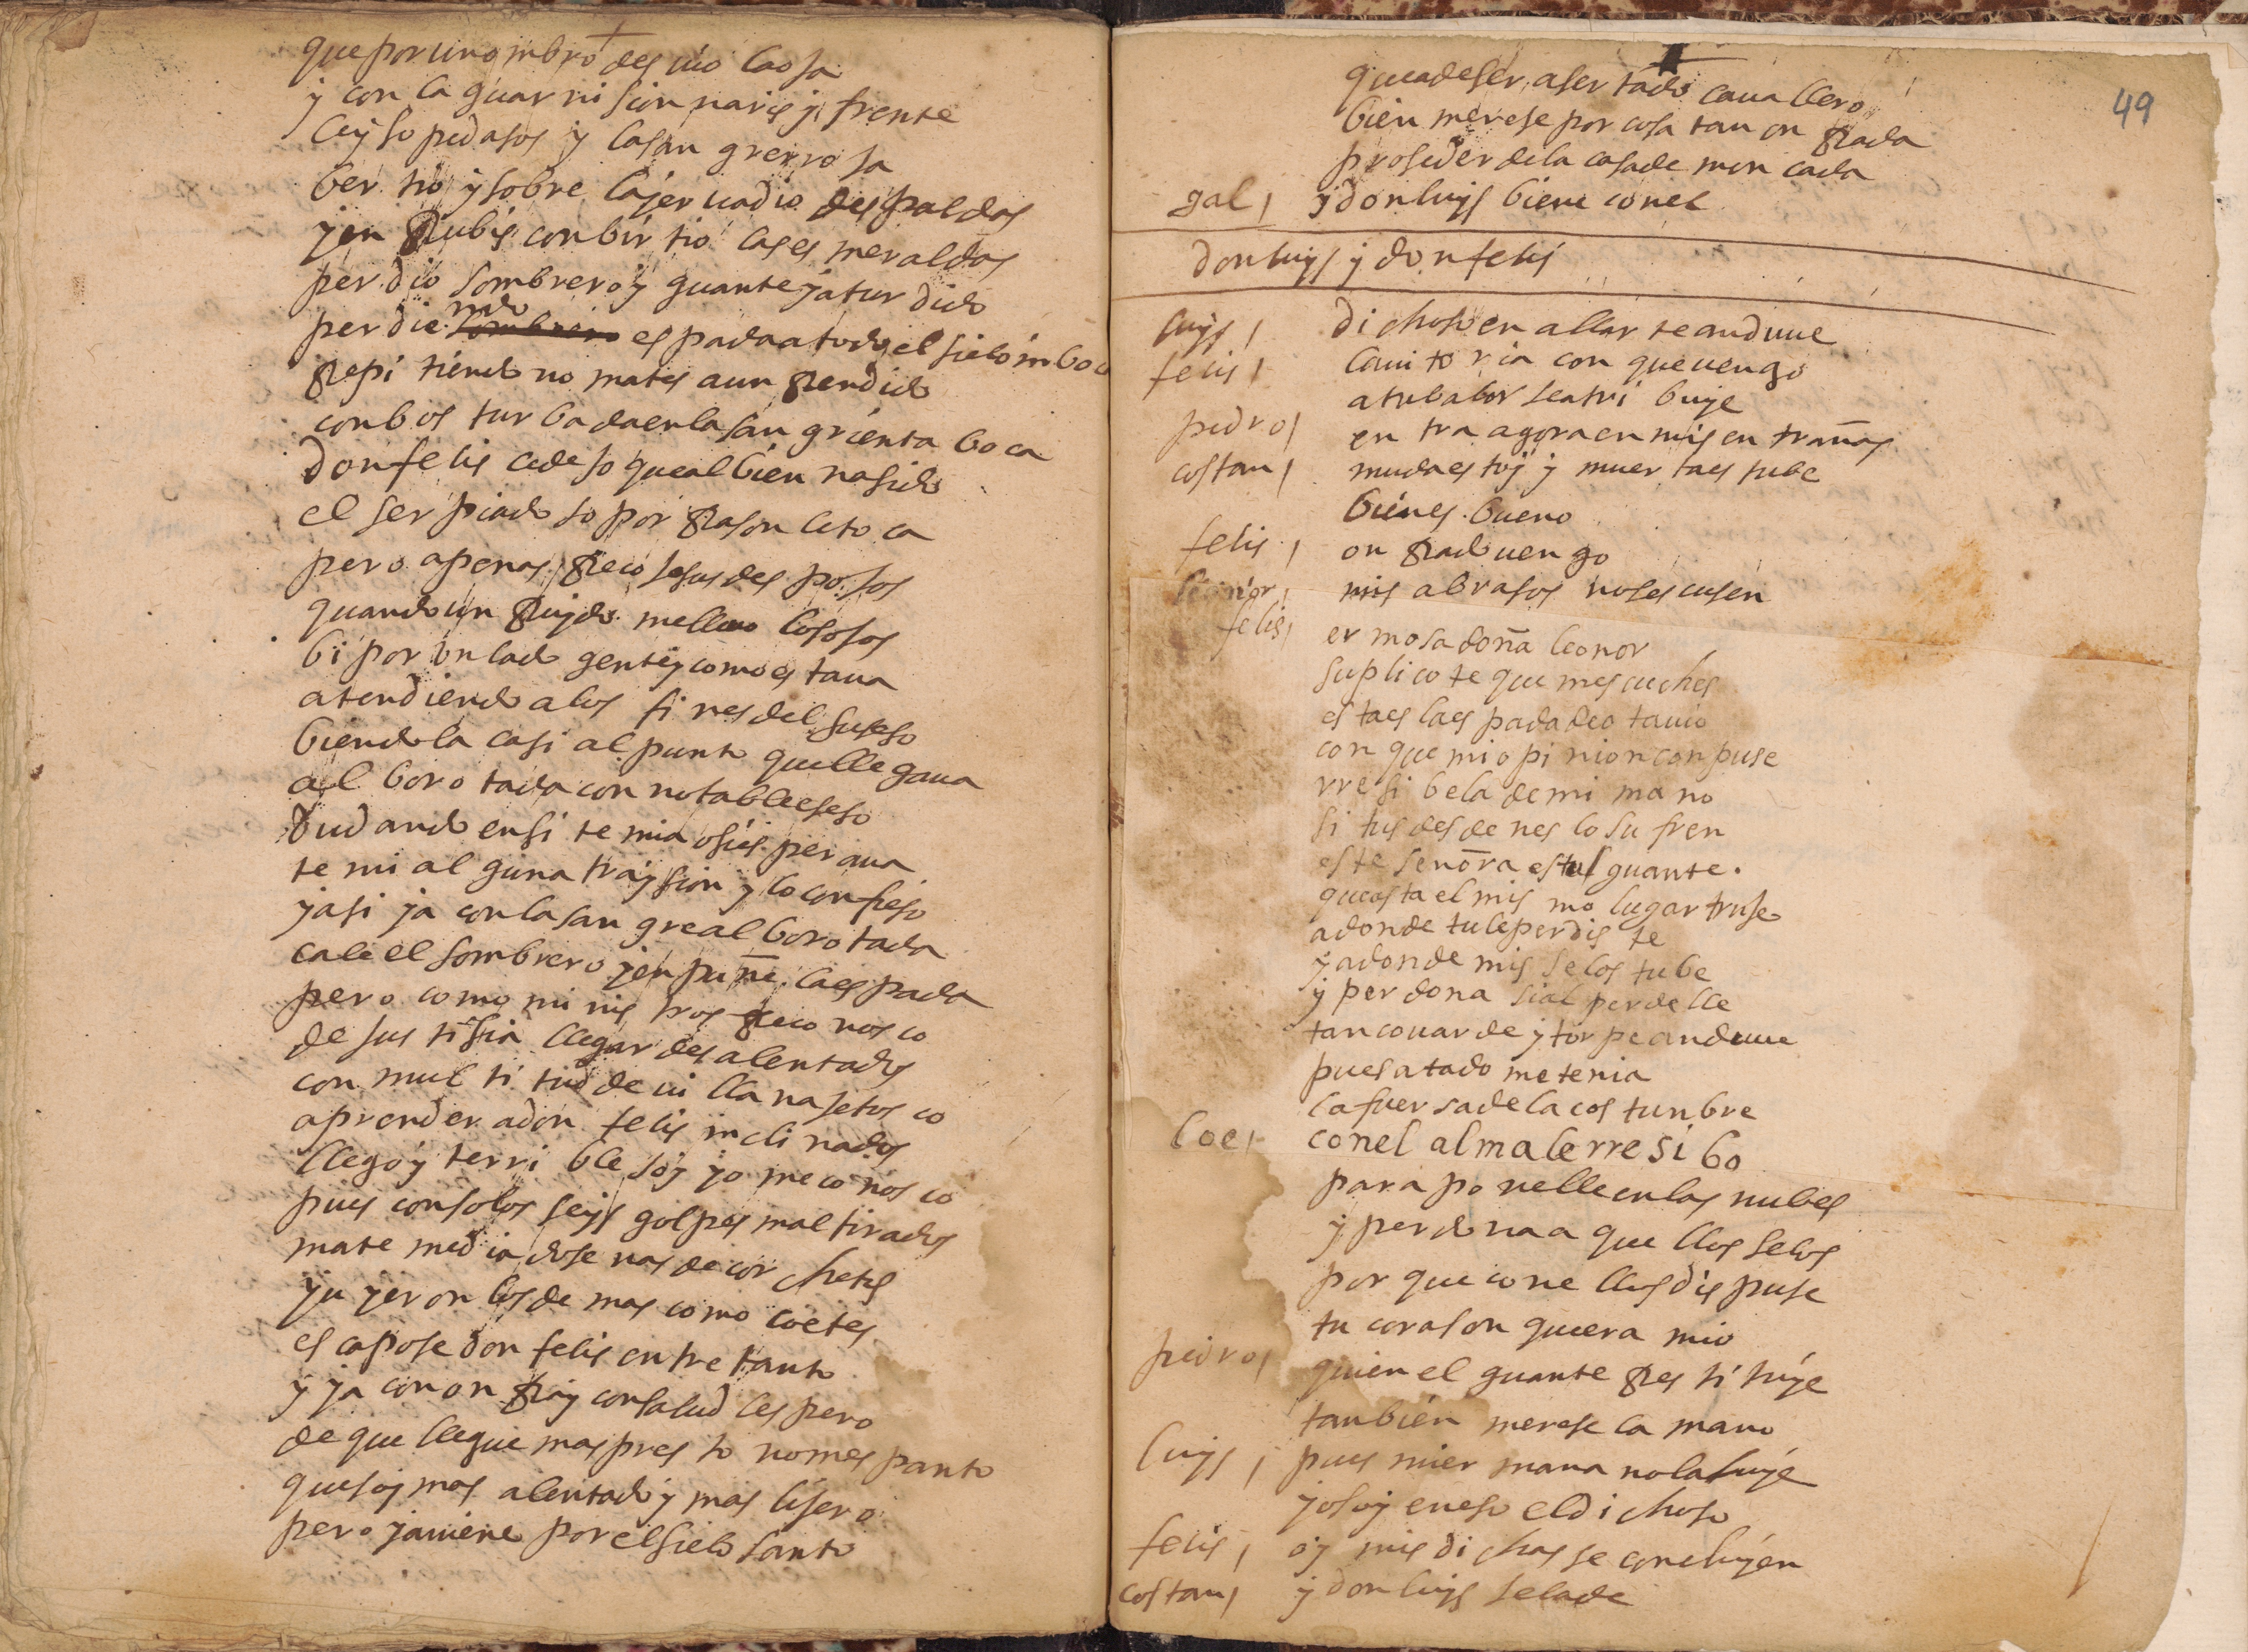 que por un ombro desuio la osa
y con la guarnision naris y frente
leyso pedasos y la sangrerrosa
bertio y sobre la jeruadio despaldas
y en Rubis conbirtio las esmeraldas
perdio sombrero y guante y aturdido
perdiendo sombrero espada a todo el sielo inboca
Repitiendo no mates a un Rendido
con bos turbada en la sangrienta boca
Don felis cedeso que al bien nasido
el ser piadoso por Rason le toca
pero apenas Recoje sus desposos
quando un Ruydo melleuo los osos
bi por un lado gente y como estaua
atendiendo a los fines del suseso
biendola casi al punto que llegaua
alborotada con notable eseso
Dudando en si temia o si esperaua
temi alguna traysion y lo confieso
y asi ya con la sangre alborotada
cale el sombrero y enpuñe la espada
pero como ministros Reconosco
de sustisia llegar desalentados
con multitud de uillanase tosco
a prender a don felis inclinados
llego y terrible soy yo me conosco
pues con solos seys golpes mal tirados
mate media dosenas de corchetes
y uyeron los demas como coetes
escapose don felis entretanto
y ya con onRa y con salud lespero
de que llegue mas presto no mespanto
que soy mas alentado y mas lisero
pero ya uiene por el sielo santo
49
que a de ser asertado cauallero
bien merese por cosa tan onRada
proseder de la casa de moncada
gal, y don luys biene con el
don luys y don felis
luys, dichoso en allarte anduue
felis, la uitoria con que uengo
a tu balor se atribuye
pedro, entra agora en mis entrañas
costan, muda estoy y muerta estube
bienes bueno
felis, onRado uengo
leonor, mis abrasos no se scusen
felis, ermosa doña leonor
suplicote que mescuches
esta es la espada de otauio
con que mi opinion conpuse
rresibela de mi mano
si tus desdenes lo sufren
este señora es tu guante.
questa el mismo lugar truse
adonde tu le perdiste
y adonde mis selos tube
y perdona si al perdelle
tan couarde y torpe anduue
pues atado me tenia
la fuersa de la costunbre
leo, con el alma le rresibo
para ponelle en las nubes
y perdona a quellos selos
porque con ellos dispuse
tu corason que era mio
pedro, quien el guante Restituye
tanbien merese la mano
luys, pues mi ermana no la huye
yo soy en eso el dichoso
felis, oy mis dichas se concluyen
costan, y don luys se la de